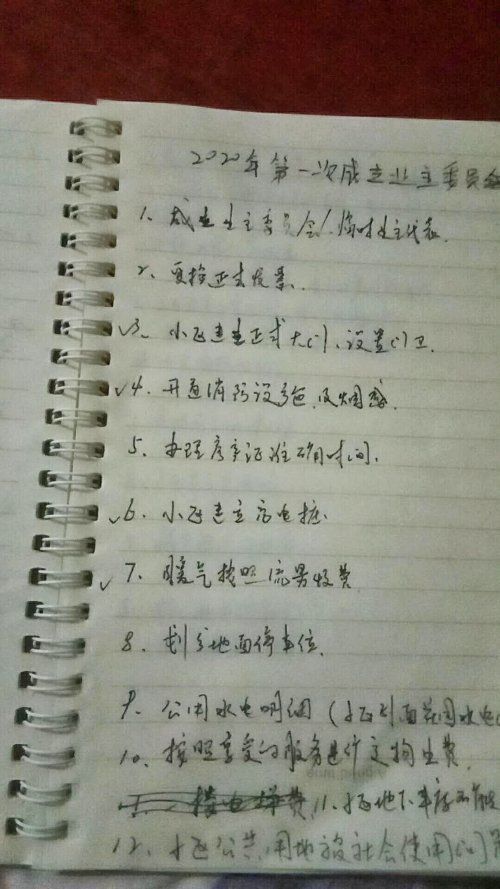 2020年第一次成立业主委员会
1、成立业主委员会/临时业主代表.
2、更换正式发票.
3、小区建立正式大门、设置门卫.
4、开通消防设施及烟感.
5、办理房产证准确时间.
6、小区建立充电桩.
7、暖气按照流量收费
8、划分地面停车位.
9、公用水电明细(小区到面花园水电
10、按照享受的服务进行交物业费.
费, 11、小区地下车库不
12、小区公共用地被社会使用的